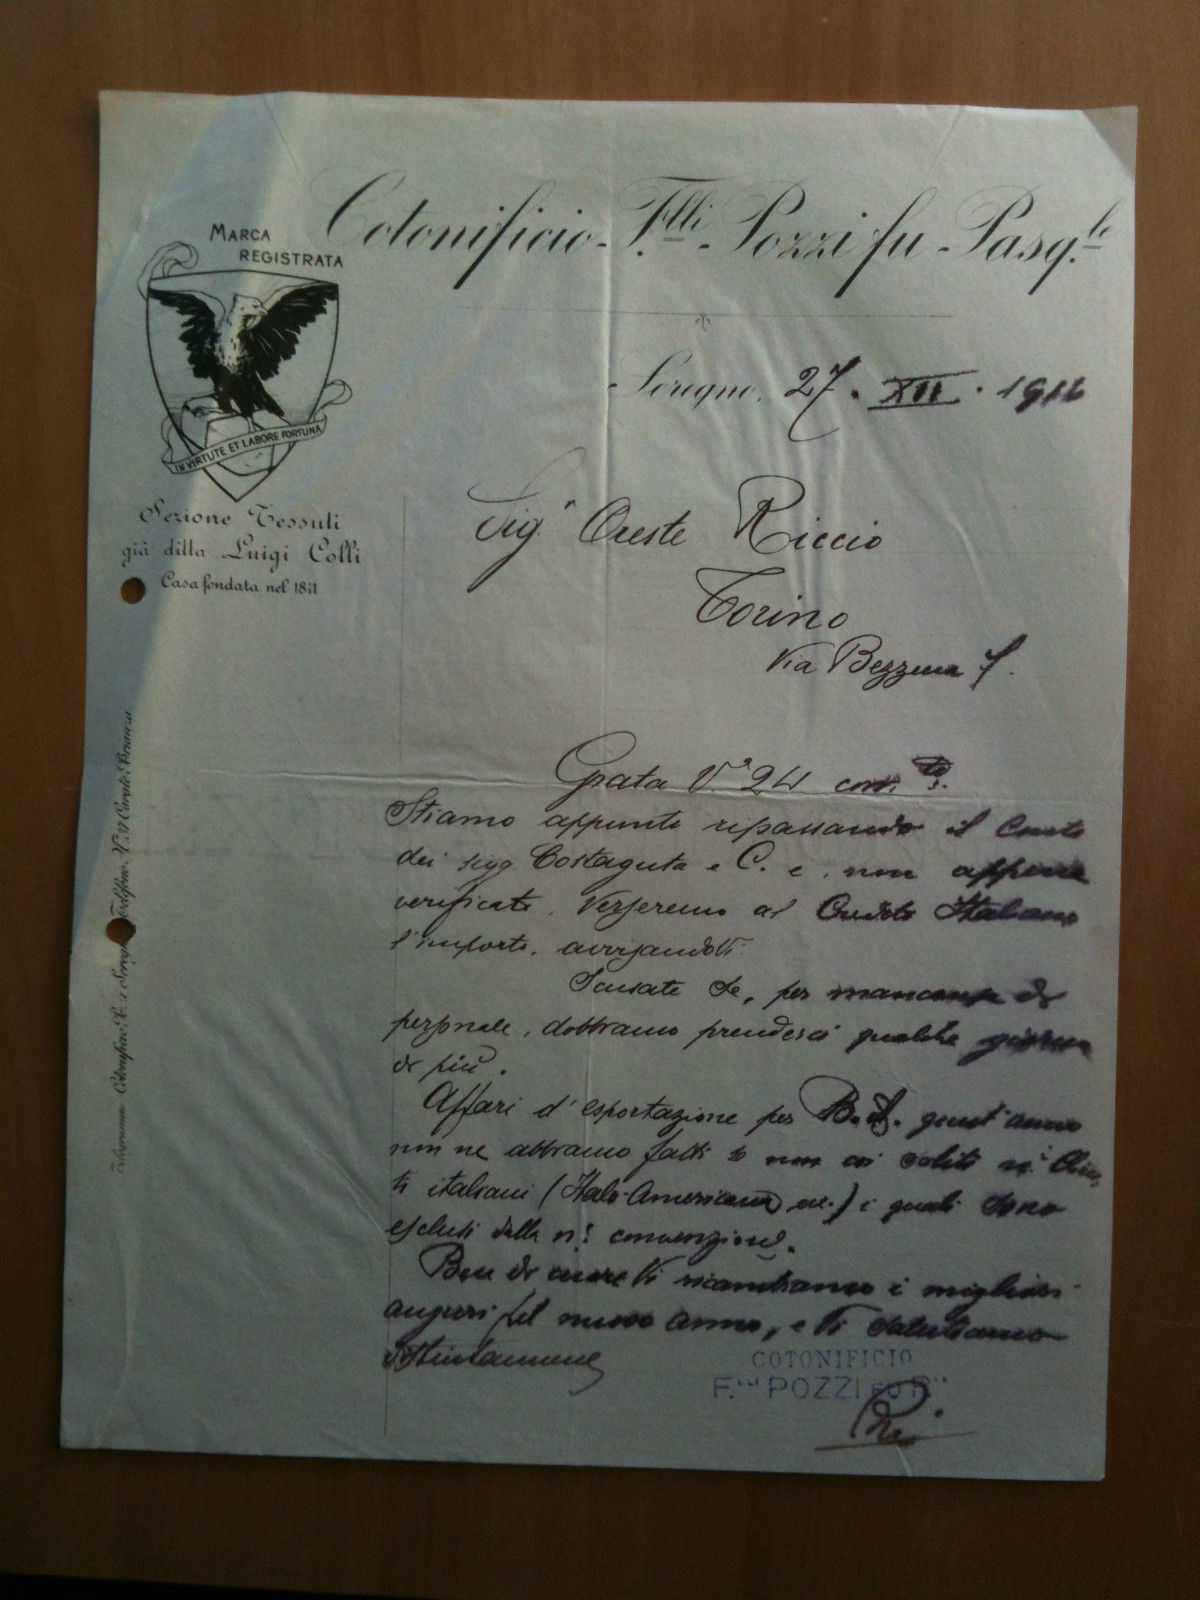 Cotonificio F.lli Pozzi fu Pasq.le
MARCA
REGISTRATA
IN VIRTUTE ET LABORE FORTUNA
Sezione Tessuti
già ditta Luigi Colli
Casa fondata nel
Seregno, 27. XII. 1916
Sig.r Oreste Riccio
Torino
Via Bezzecca 7.
Grata V.a 24 corr.te
Stiamo appunto ripassando il Conto
dei sigg. Costaguta e C. e, non appena
verificato, verseremo al Credito Italiano
l'importo, avvisandoVi.
Scusate se, per mancanza di
personale, dobbiamo prenderci qualche giorno
di più.
Affari d'esportazione per B.A. quest'anno
non ne abbiamo fatti se non coi soliti n.i Clien
ti italiani (Italo-Americana ecc.) i quali sono
esclusi dalla n.s convenzione.
Ben di cuore Vi ricambiamo i migliori
auguri pel nuovo anno, e Vi salutiamo
distintamente
COTONIFICIO
F.lli POZZI FU P.